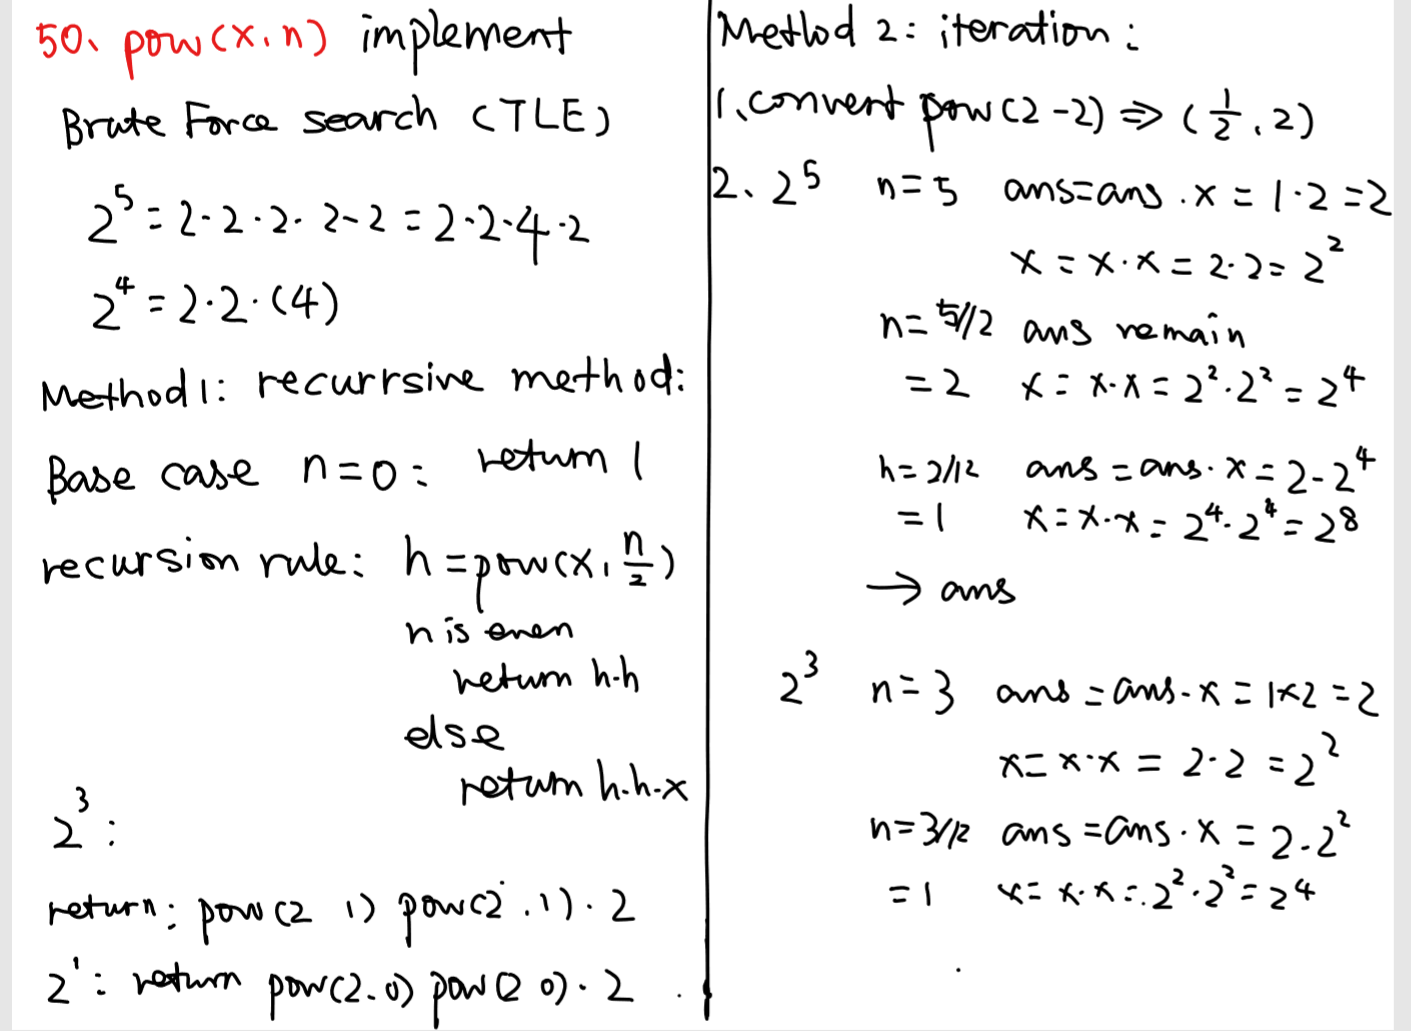 50、pow(x,n) implement
Brute Force search (TLE)
2⁵ = 2·2·2·2·2 = 2·2·4·2
2⁴ = 2·2·(4)
Method1: recurrsive method:
Base case n=0: return 1
recursion rule: h=pow(x,n/2)
n is even
return h·h
else
return h·h·x
2³:
return: pow(2 1) pow(2,1)·2
2¹: return pow(2,0) pow(2 0)·2
Method 2: iteration:
1、convert pow(2-2) ⇒ (1/2,2)
2、2⁵ n=5 ans=ans·x = 1·2=2
x=x·x=2·2=2²
n=5//2 ans remain
=2 x=x·x=2²·2²=2⁴
n=2//2 ans=ans·x=2·2⁴
=1 x=x·x=2⁴·2⁴=2⁸
→ ans
2³ n=3 ans=ans·x=1×2=2
x=x·x=2·2=2²
n=3//2 ans=ans·x=2·2²
=1 x=x·x=2²·2²=2⁴